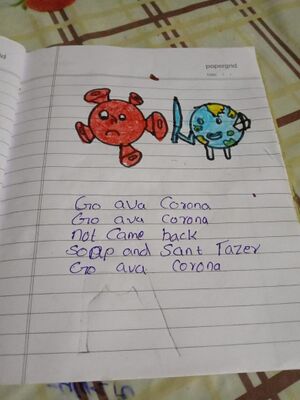 papergrid
Go ava Corona
Go ava corona
not Came back
Soap and Sant Tazer
Go ava corona